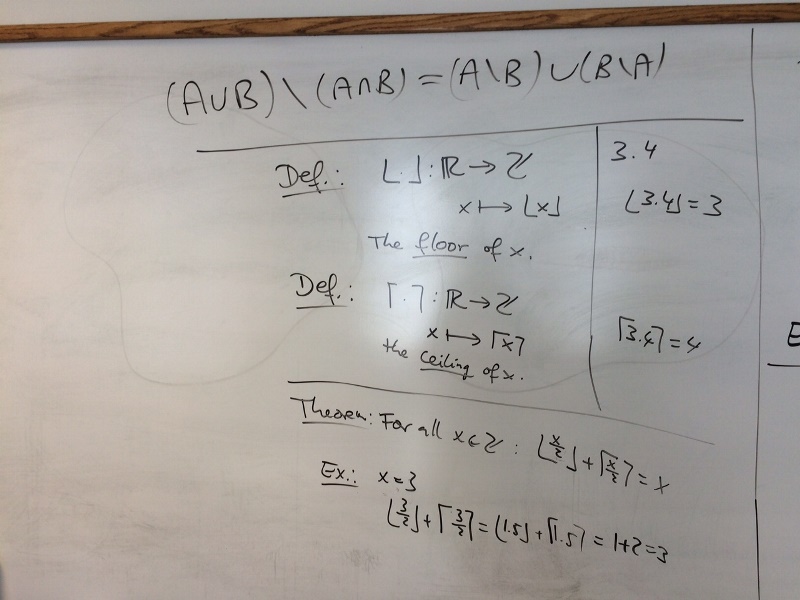 (A∪B) \ (A∩B) = (A\B) ∪ (B\A)
Def.: ⌊.⌋ : ℝ → ℤ
x ↦ ⌊x⌋
The floor of x.
Def.: ⌈.⌉ : ℝ → ℤ
x ↦ ⌈x⌉
the ceiling of x.
3.4
⌊3.4⌋ = 3
⌈3.4⌉ = 4
Theorem: For all x ∈ ℤ : ⌊x/2⌋ + ⌈x/2⌉ = x
Ex.: x = 3
⌊3/2⌋ + ⌈3/2⌉ = ⌊1.5⌋ + ⌈1.5⌉ = 1+2 = 3